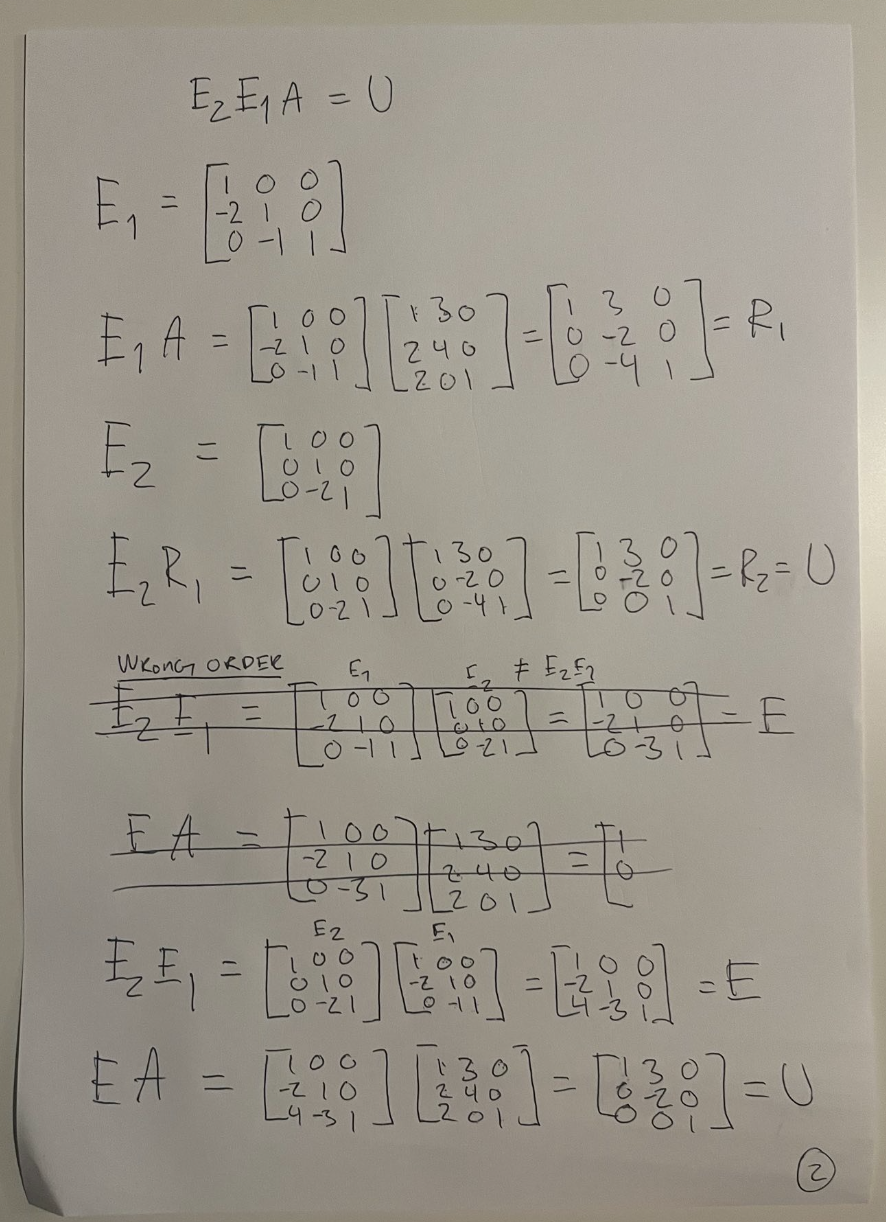 E₂E₁A = U
E₁ = [1 0 0; -2 1 0; 0 -1 1]
E₁A = [1 0 0; -2 1 0; 0 -1 1] [1 3 0; 2 4 0; 2 0 1] = [1 3 0; 0 -2 0; 0 -4 1] = R₁
E₂ = [1 0 0; 0 1 0; 0 -2 1]
E₂R₁ = [1 0 0; 0 1 0; 0 -2 1] [1 3 0; 0 -2 0; 0 -4 1] = [1 3 0; 0 -2 0; 0 0 1] = R₂ = U
WRONG ORDER E₁ E₂ ≠ E₂E₁
E₂E₁ = [1 0 0; -2 1 0; 0 -1 1] [1 0 0; 0 1 0; 0 -2 1] = [1 0 0; -2 1 0; 0 -3 1] = E
EA = [1 0 0; -2 1 0; 0 -3 1] [1 3 0; 2 4 0; 2 0 1] = [1 0
E₂ E₁
E₂E₁ = [1 0 0; 0 1 0; 0 -2 1] [1 0 0; -2 1 0; 0 -1 1] = [1 0 0; -2 1 0; 4 -3 1] = E
EA = [1 0 0; -2 1 0; 4 -3 1] [1 3 0; 2 4 0; 2 0 1] = [1 3 0; 0 -2 0; 0 0 1] = U
2